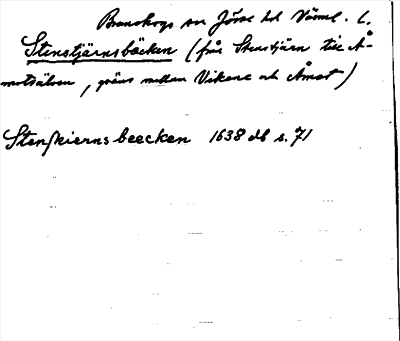 Brunskogs sn Jösse hd Värml. L.
Stenstjärnsbäcken (från Stenstjärn till Å-
motsälven, gräns mellan Vikene och Åmot)
Stenskierns beecken 1638 db s. 71